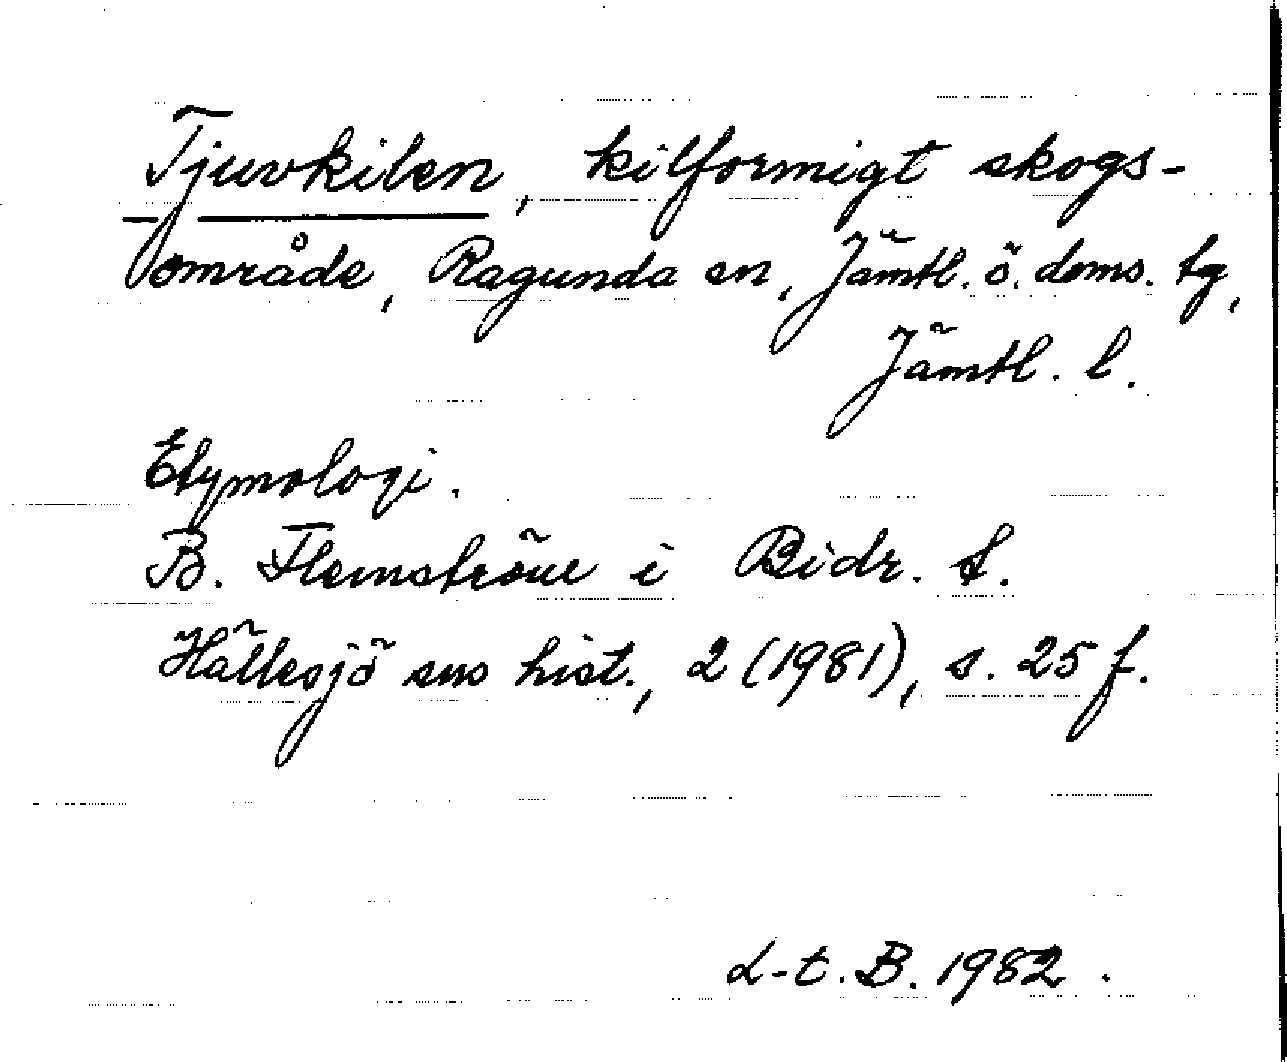 Tjuvkilen, kilformigt skogs-
område, Ragunda sn, Jämtl. ö. doms. tg,
Jämtl. l.
Etymologi.
B. Flemström i Bidr. t.
Hällesjö sns hist., 2 (1981), s. 25 f.
L-t. B. 1982.